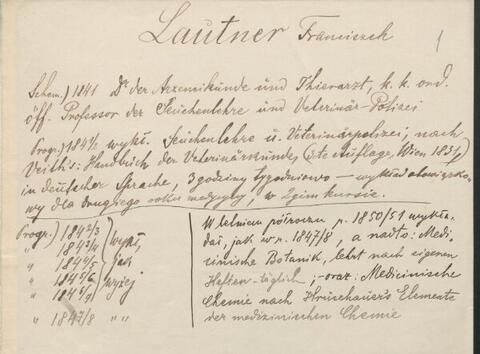 Lautner Franciszek
1
Schem.) 1841 Dr der Arzeneikunde und Thierarzt, k. k. ord.
öff. Professor der Seuchenlehre und Veterinär-Polizei
Progr.) 184½ wykł. Seuchenlehre u. Veterinärpolizei, nach
Veith's: Handbuch der Veterinärkunde, Auflage, Wien 1831,)
in deutscher Sprache, 3 godziny tygodniowo — wykład obowiązko-
wy dla drugiego roku medycyny, w kursie.
Progr.) 184 2/3
" 184 3/4
" 184 4/5
" 184 5/6
" 184 6/7
" 1847/8 " "
wykł.
jak
wyżej
W letniem półroczu r. 1850/51 wykła-
dał, jak w r. 1847/8, a nadto: Medi-
cinische Botanik, lehrt nach eigenen
Heften - täglich; - oraz: Medicinische
Chemie nach Hruschauer's Elemente
der medizinischen Chemie